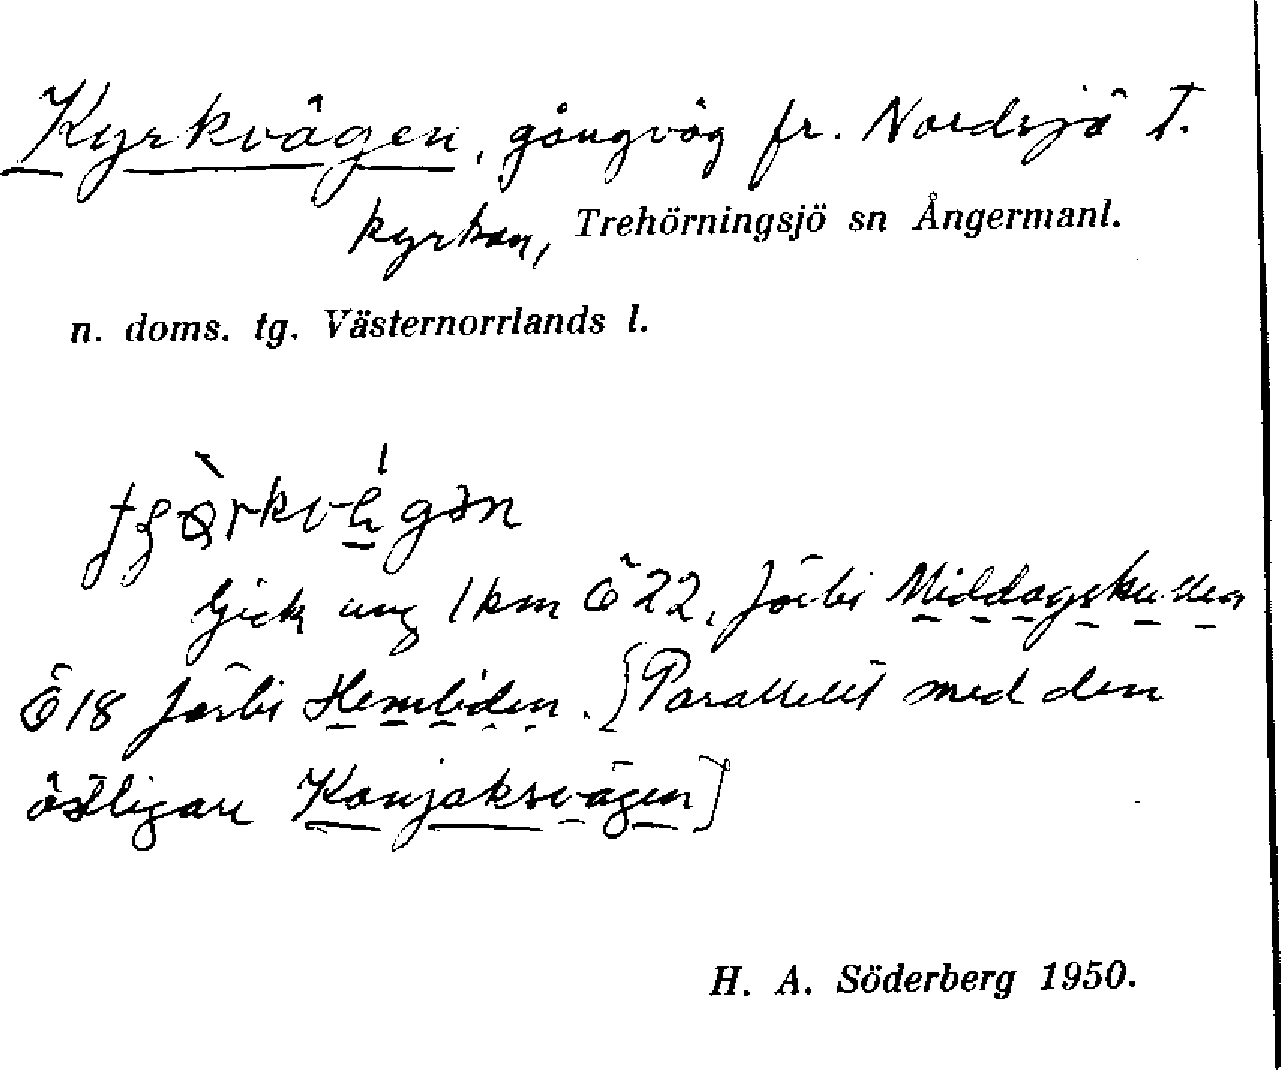 Kyrkvägen, gångväg fr. Nordsjö t.
kyrkan, Trehörningsjö sn Ångermanl.
n. doms. tg. Västernorrlands l.
Gick ung 1 km Ö 22, förbi Middagskullen
Ö 18 förbi Hemliden. [Parallellt med den
östligare Konjaksvägen]
H. A. Söderberg 1950.